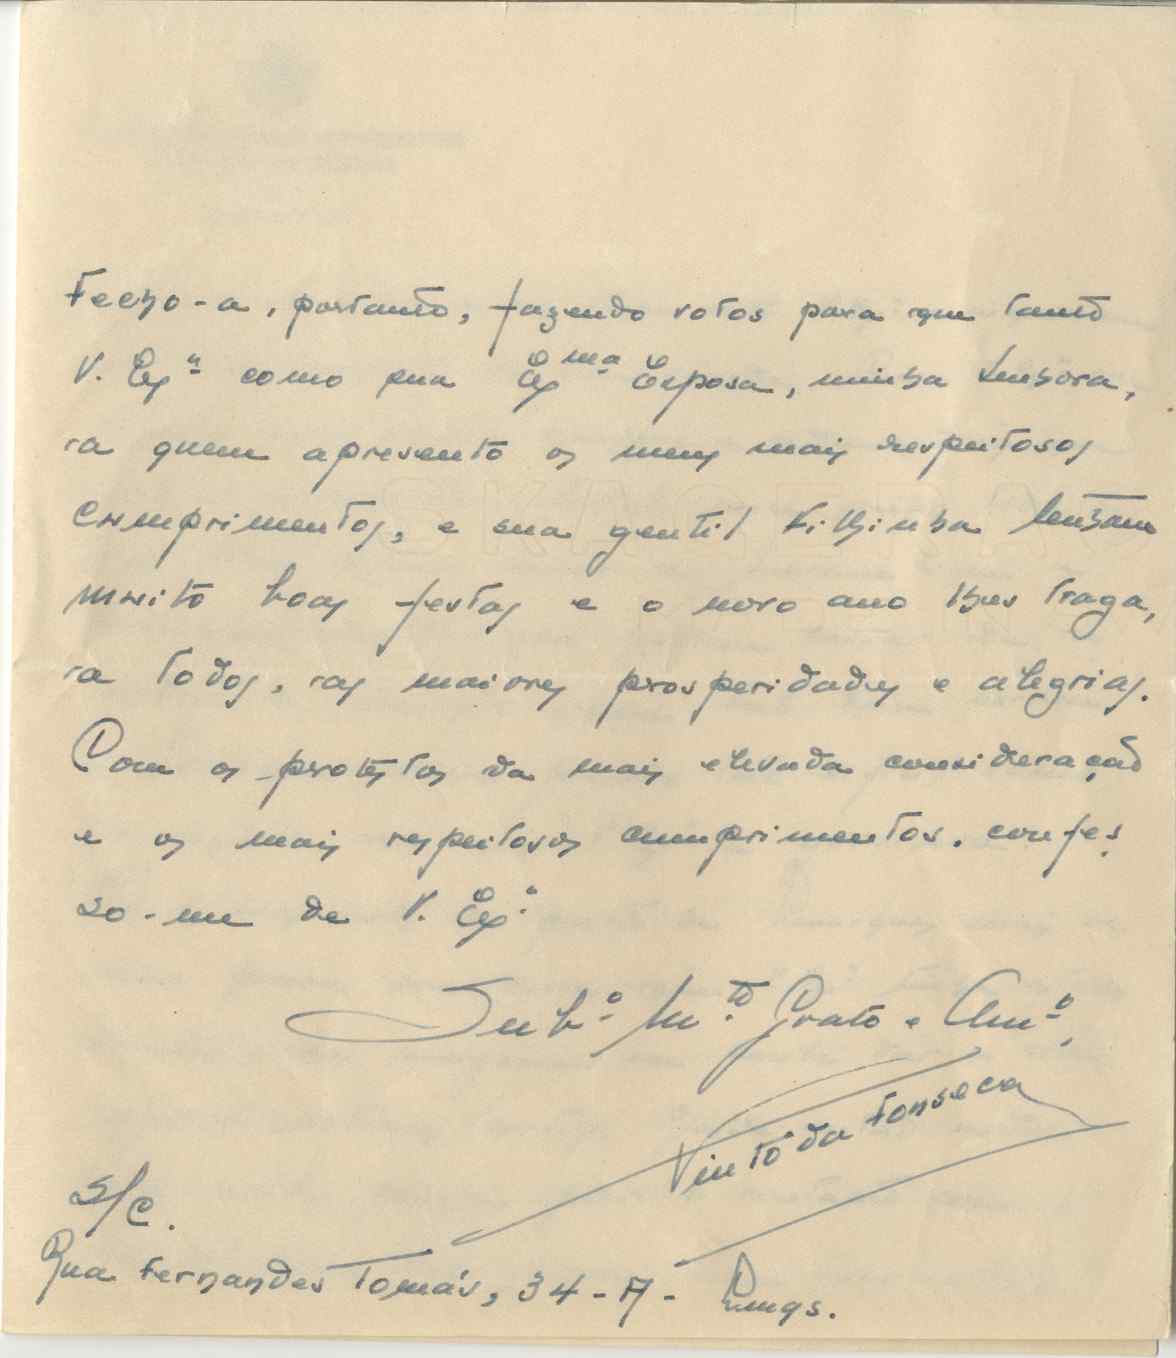 Fecho-a, portanto, fazendo votos para que tanto
V. Exª como sua Exma Esposa, minha Senhora,
a quem apresento os meus mais respeitosos
cumprimentos, e sua gentil Filhinha tenham
muito boas festas e o novo ano lhes traga,
a todos, as maiores prosperidades e alegrias.
Com os protestos da mais elevada consideração
e os mais respeitosos cumprimentos, confes
so-me de V. Exª
Subº Mtº Grato e Amº,
Pinto da Fonseca
S/C.
Rua Fernandes Tomás, 34-A-
SKAGERAK